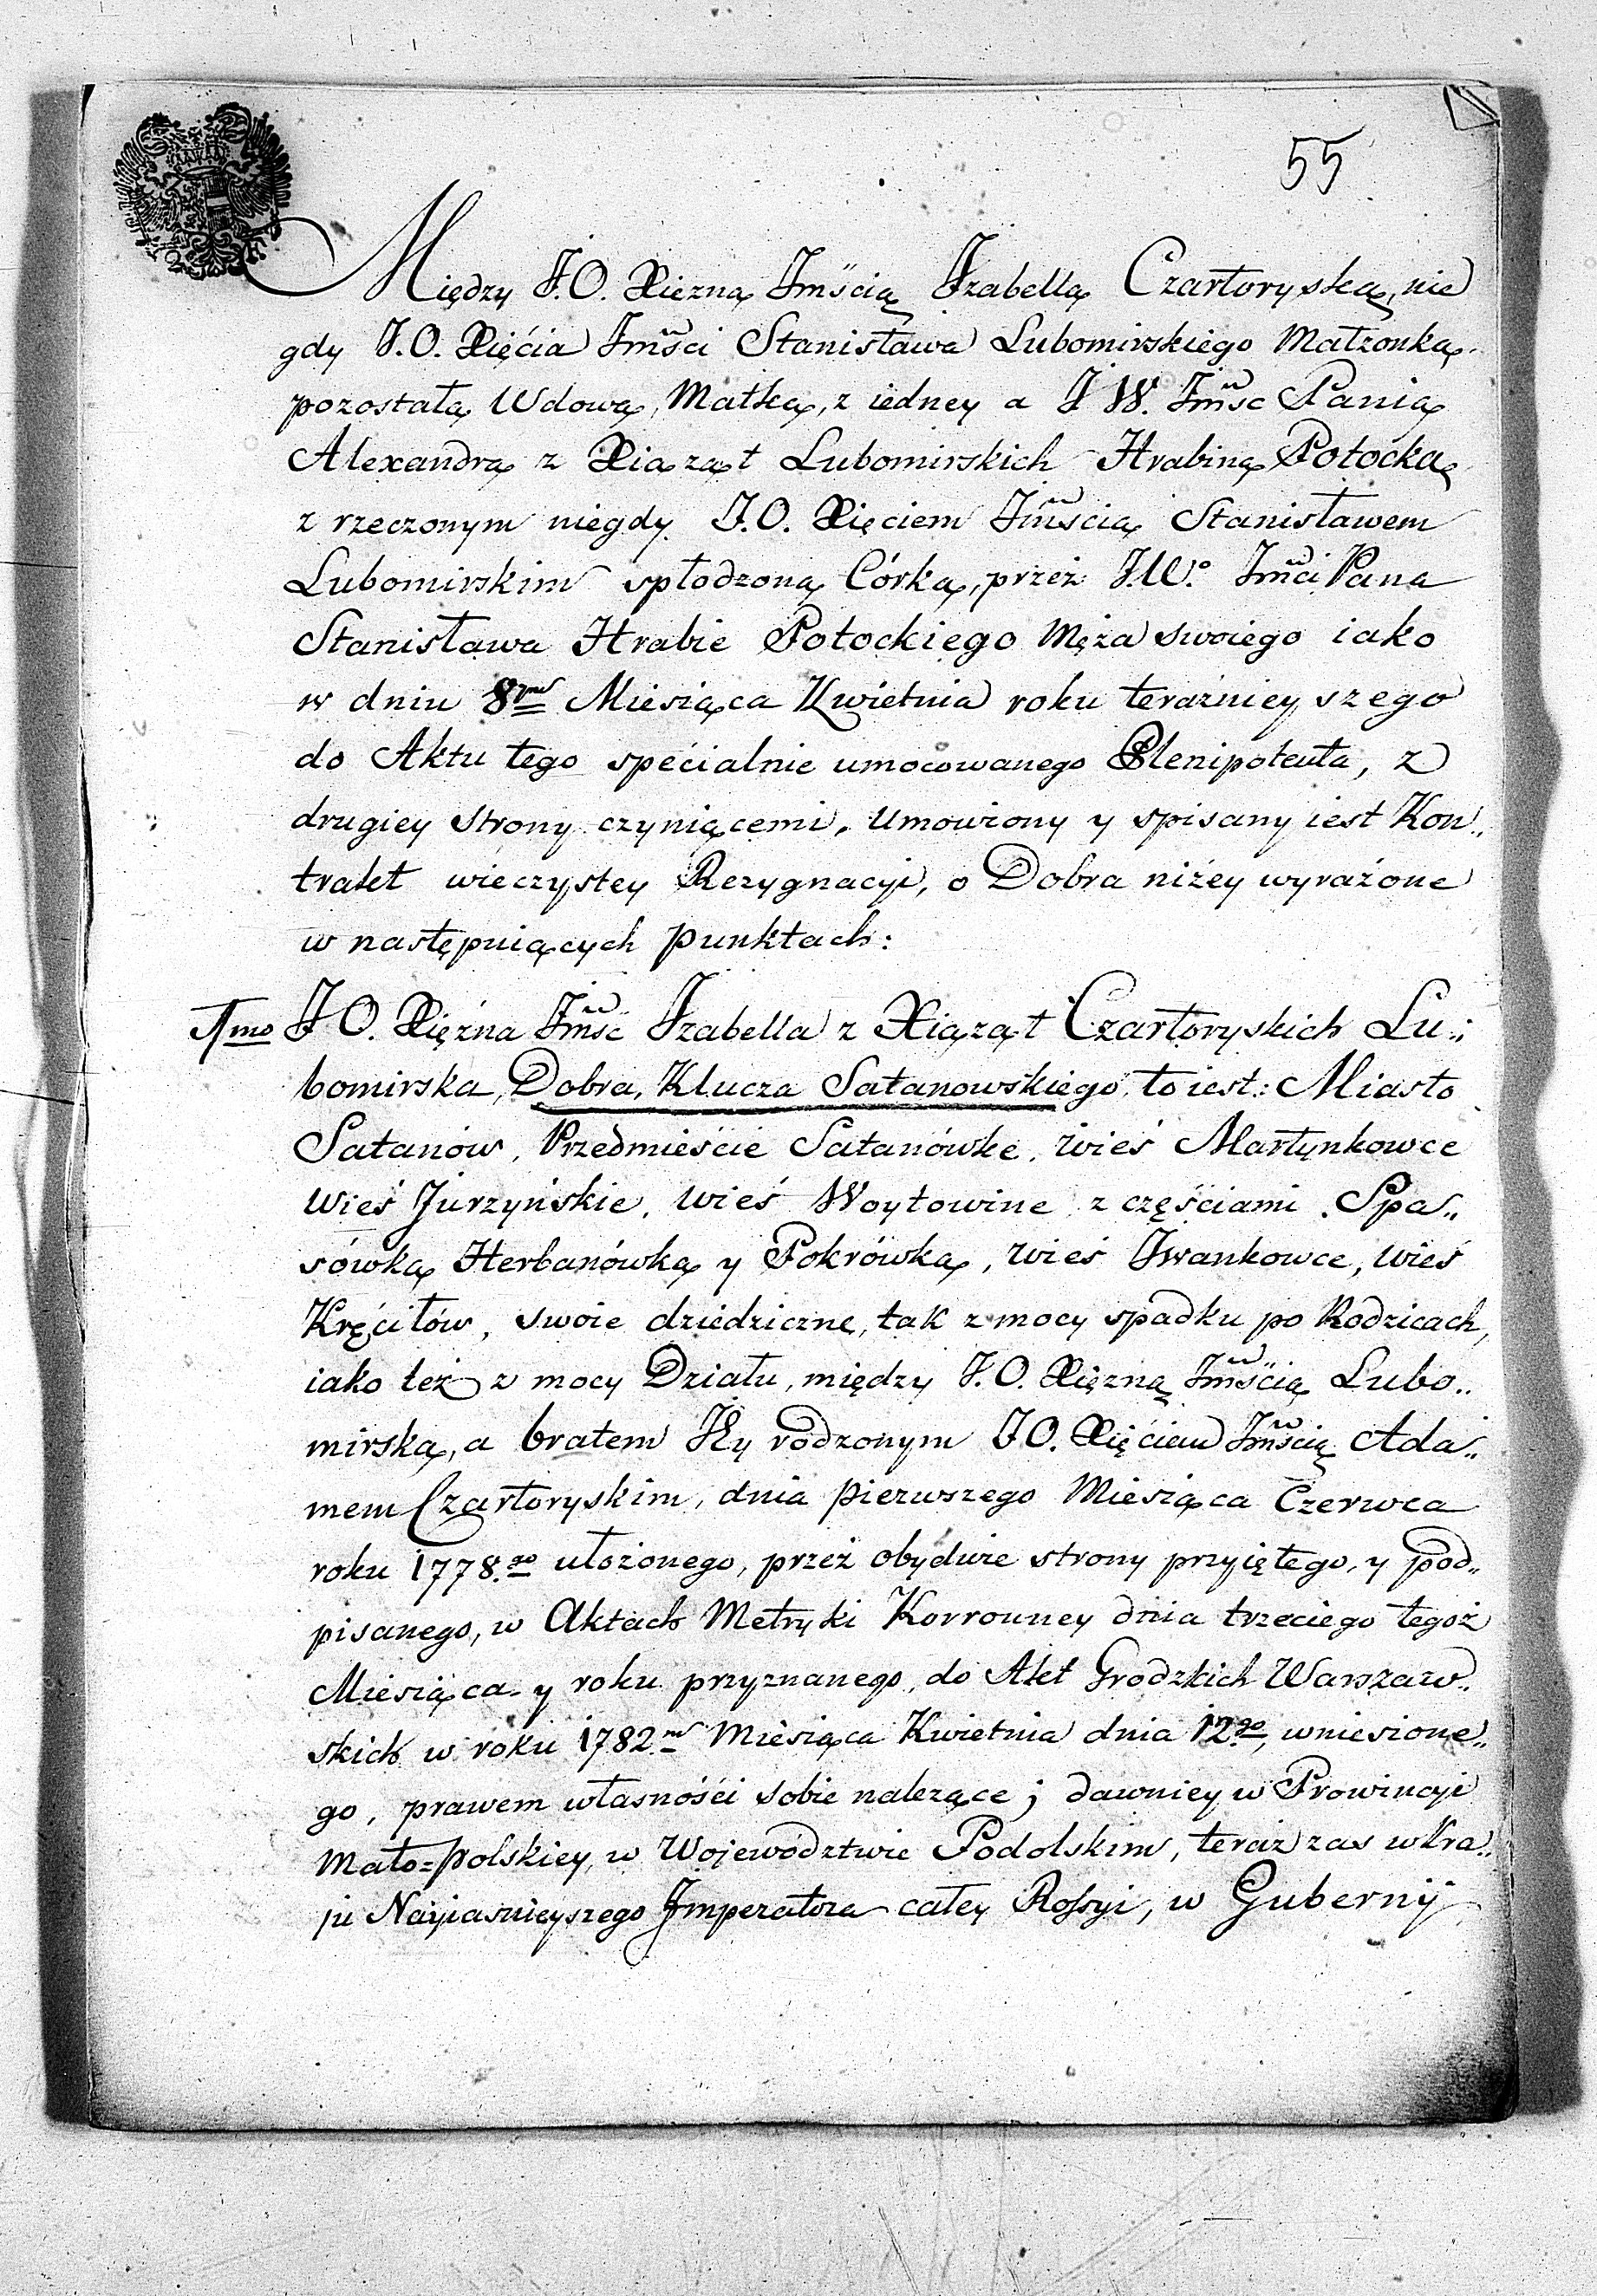 55
Między J.O. Xiezną Jmścią Jzabellą Czartoryską, nie
gdy J.O. Xięćia Jmści Stanisława Lubomirskiego Małzonką,
pozostałą Wdową, Matką, z iedney a J W. Jmśc Panią
Alexandrą z Xiążąt Lubomirskich Hrabiną Potocką
z rzeczonym niegdy J.O. Xięciem Jmścią Stanisławem
Lubomirskim spłodzoną Córką, przez J.W.º Jmci Pana
Stanisława Hrabie Potockiego Męża swoiego iako
w dniu 8ym Miesiąca Kwietnia roku teraźnieyszego
do Aktu tego specialnie umocowanego Plenipotenta, z
drugiey strony czyniącemi, umowiony y spisany iest Kon„
trakt wieczystey Rezygnacyi, o Dobra niżey wyrażone
w następuiących punktach:
1mo J O. Xięźna Jmść Jzabella z Xiążąt Czartoryskich Lu„
bomirska, Dobra, Klucza Satanowskiego, to iest: Miasto
Satanów, Przedmieście Satanówke, wieś Martynkowce
Wieś Jurzyńskie, wieś Woytowine z częściami Spa„
sówką Herbanówką y Pokrówką, wieś Jwankowce, wieś
Kręciłów, swoie dziedziczne, tak z mocy spadku po Rodzicach,
iako też z mocy Działu, między J.O. Xięzną Jmścią Lubo„
mirską, a bratem Jey rodzonym J O. Xięćiem Jmścią Ada„
mem Czartoryskim, dnia pierwszego Miesiąca Czerwca
roku 1778.go ułożonego, przez obydwie strony przyiętego, y pod„
pisanego, w Aktach Metryki Korronney dnia trzeciego tegoż
Miesiąca y roku przyznanego, do Akt Grodzkich Warszaw„
skich w roku 1782.m Miesiąca Kwietnia dnia 12.go, wniesione„
go, prawem własnośći sobie należące; dawniey w Prowincyi
Mało=polskiey, w Województwie Podolskim, teraz zas w Kra„
ju Nayiasnieyszego Jmperatora całey Rossyi, w Gubernij